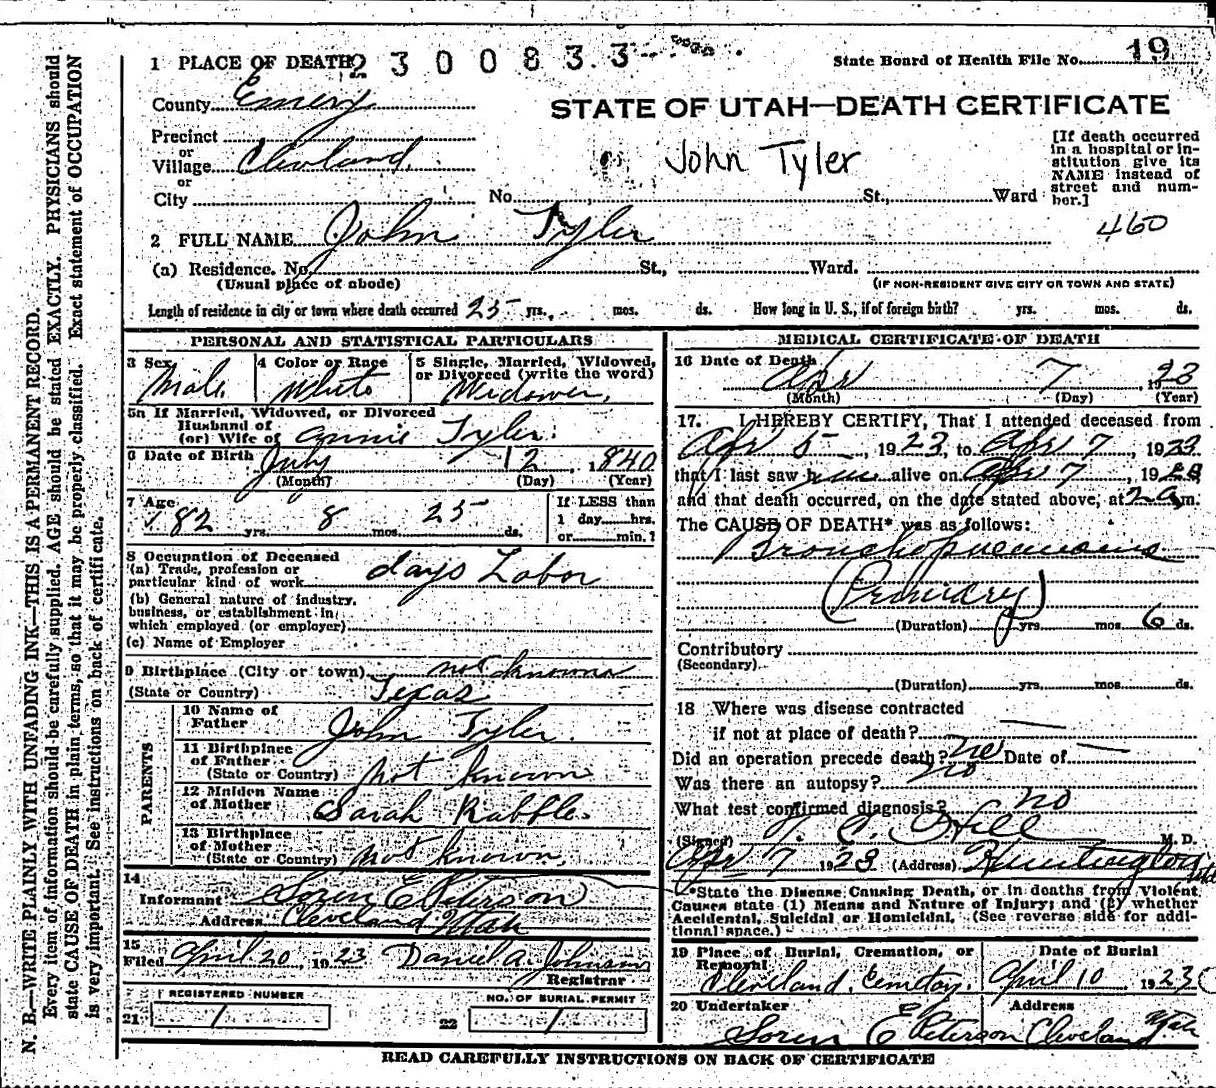 1 PLACE OF DEATH 2300833
State Board of Health File No. 19
County Emery
STATE OF UTAH—DEATH CERTIFICATE
Precinct
or
Village Cleveland
or
City
John Tyler
No. St., Ward
[If death occurred
in a hospital or in-
stitution give its
NAME instead of
street and num-
ber.]
2 FULL NAME John Tyler
460
(a) Residence. No. St., Ward.
(Usual place of abode)
(IF NON-RESIDENT GIVE CITY OR TOWN AND STATE)
Length of residence in city or town where death occurred 25 yrs. mos. ds. How long in U. S., if of foreign birth? yrs. mos. ds.
PERSONAL AND STATISTICAL PARTICULARS
3 Sex Male
4 Color or Race White
5 Single, Married, Widowed,
or Divorced (write the word)
Widower
5a If Married, Widowed, or Divorced
Husband of
(or) Wife of Annie Tyler
6 Date of Birth July 12, 1840
(Month) (Day) (Year)
7 Age 82 yrs. 8 mos. 25 ds.
If LESS than
1 day hrs.
or min.?
8 Occupation of Deceased
(a) Trade, profession or
particular kind of work days Labor
(b) General nature of industry,
business, or establishment in
which employed (or employer)
(c) Name of Employer
9 Birthplace (City or town) not known
(State or Country) Texas
PARENTS
10 Name of
Father John Tyler
11 Birthplace
of Father
(State or Country) Not known
12 Maiden Name
of Mother Sarah Rabble
13 Birthplace
of Mother
(State or Country) not known
14
Informant Soren E Peterson
Address Cleveland Utah
15
Filed April 20, 1923 Daniel A. Johnson
Registrar
REGISTERED NUMBER
21 1
NO. OF BURIAL PERMIT
22 1
MEDICAL CERTIFICATE OF DEATH
16 Date of Death
Apr 7, 1923
(Month) (Day) (Year)
17. I HEREBY CERTIFY, That I attended deceased from
Apr 5, 1923, to Apr 7, 1923
that I last saw him alive on Apr 7, 1923
and that death occurred, on the date stated above, at 2 a m.
The CAUSE OF DEATH* was as follows:
Bronchopneumonia
(Primary)
(Duration) yrs. mos. 6 ds.
Contributory
(Secondary)
(Duration) yrs. mos. ds.
18 Where was disease contracted
if not at place of death? —
Did an operation precede death? no Date of —
Was there an autopsy? no
What test confirmed diagnosis? no
(Signed) T. C. Hill M. D.
Apr 7 1923 (Address) Huntington Utah
*State the Disease Causing Death, or in deaths from Violent
Causes state (1) Means and Nature of Injury; and (2) whether
Accidental, Suicidal or Homicidal. (See reverse side for addi-
tional space.)
19 Place of Burial, Cremation, or
Removal
Cleveland Cemetary
Date of Burial
April 10 1923
20 Undertaker
Soren E Peterson
Address
Cleveland Utah
READ CAREFULLY INSTRUCTIONS ON BACK OF CERTIFICATE
N. B.—WRITE PLAINLY WITH UNFADING INK—THIS IS A PERMANENT RECORD.
Every item of information should be carefully supplied. AGE should be stated EXACTLY. PHYSICIANS should
state CAUSE OF DEATH in plain terms, so that it may be properly classified. Exact statement of OCCUPATION
is very important. See instructions on back of certificate.